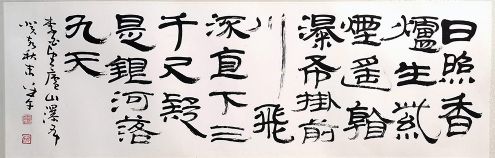 日照香
爐生紫
煙遙看
瀑布掛前
川飛
流直下三
千尺疑
是銀河落
九天
李白望廬山瀑布
秋